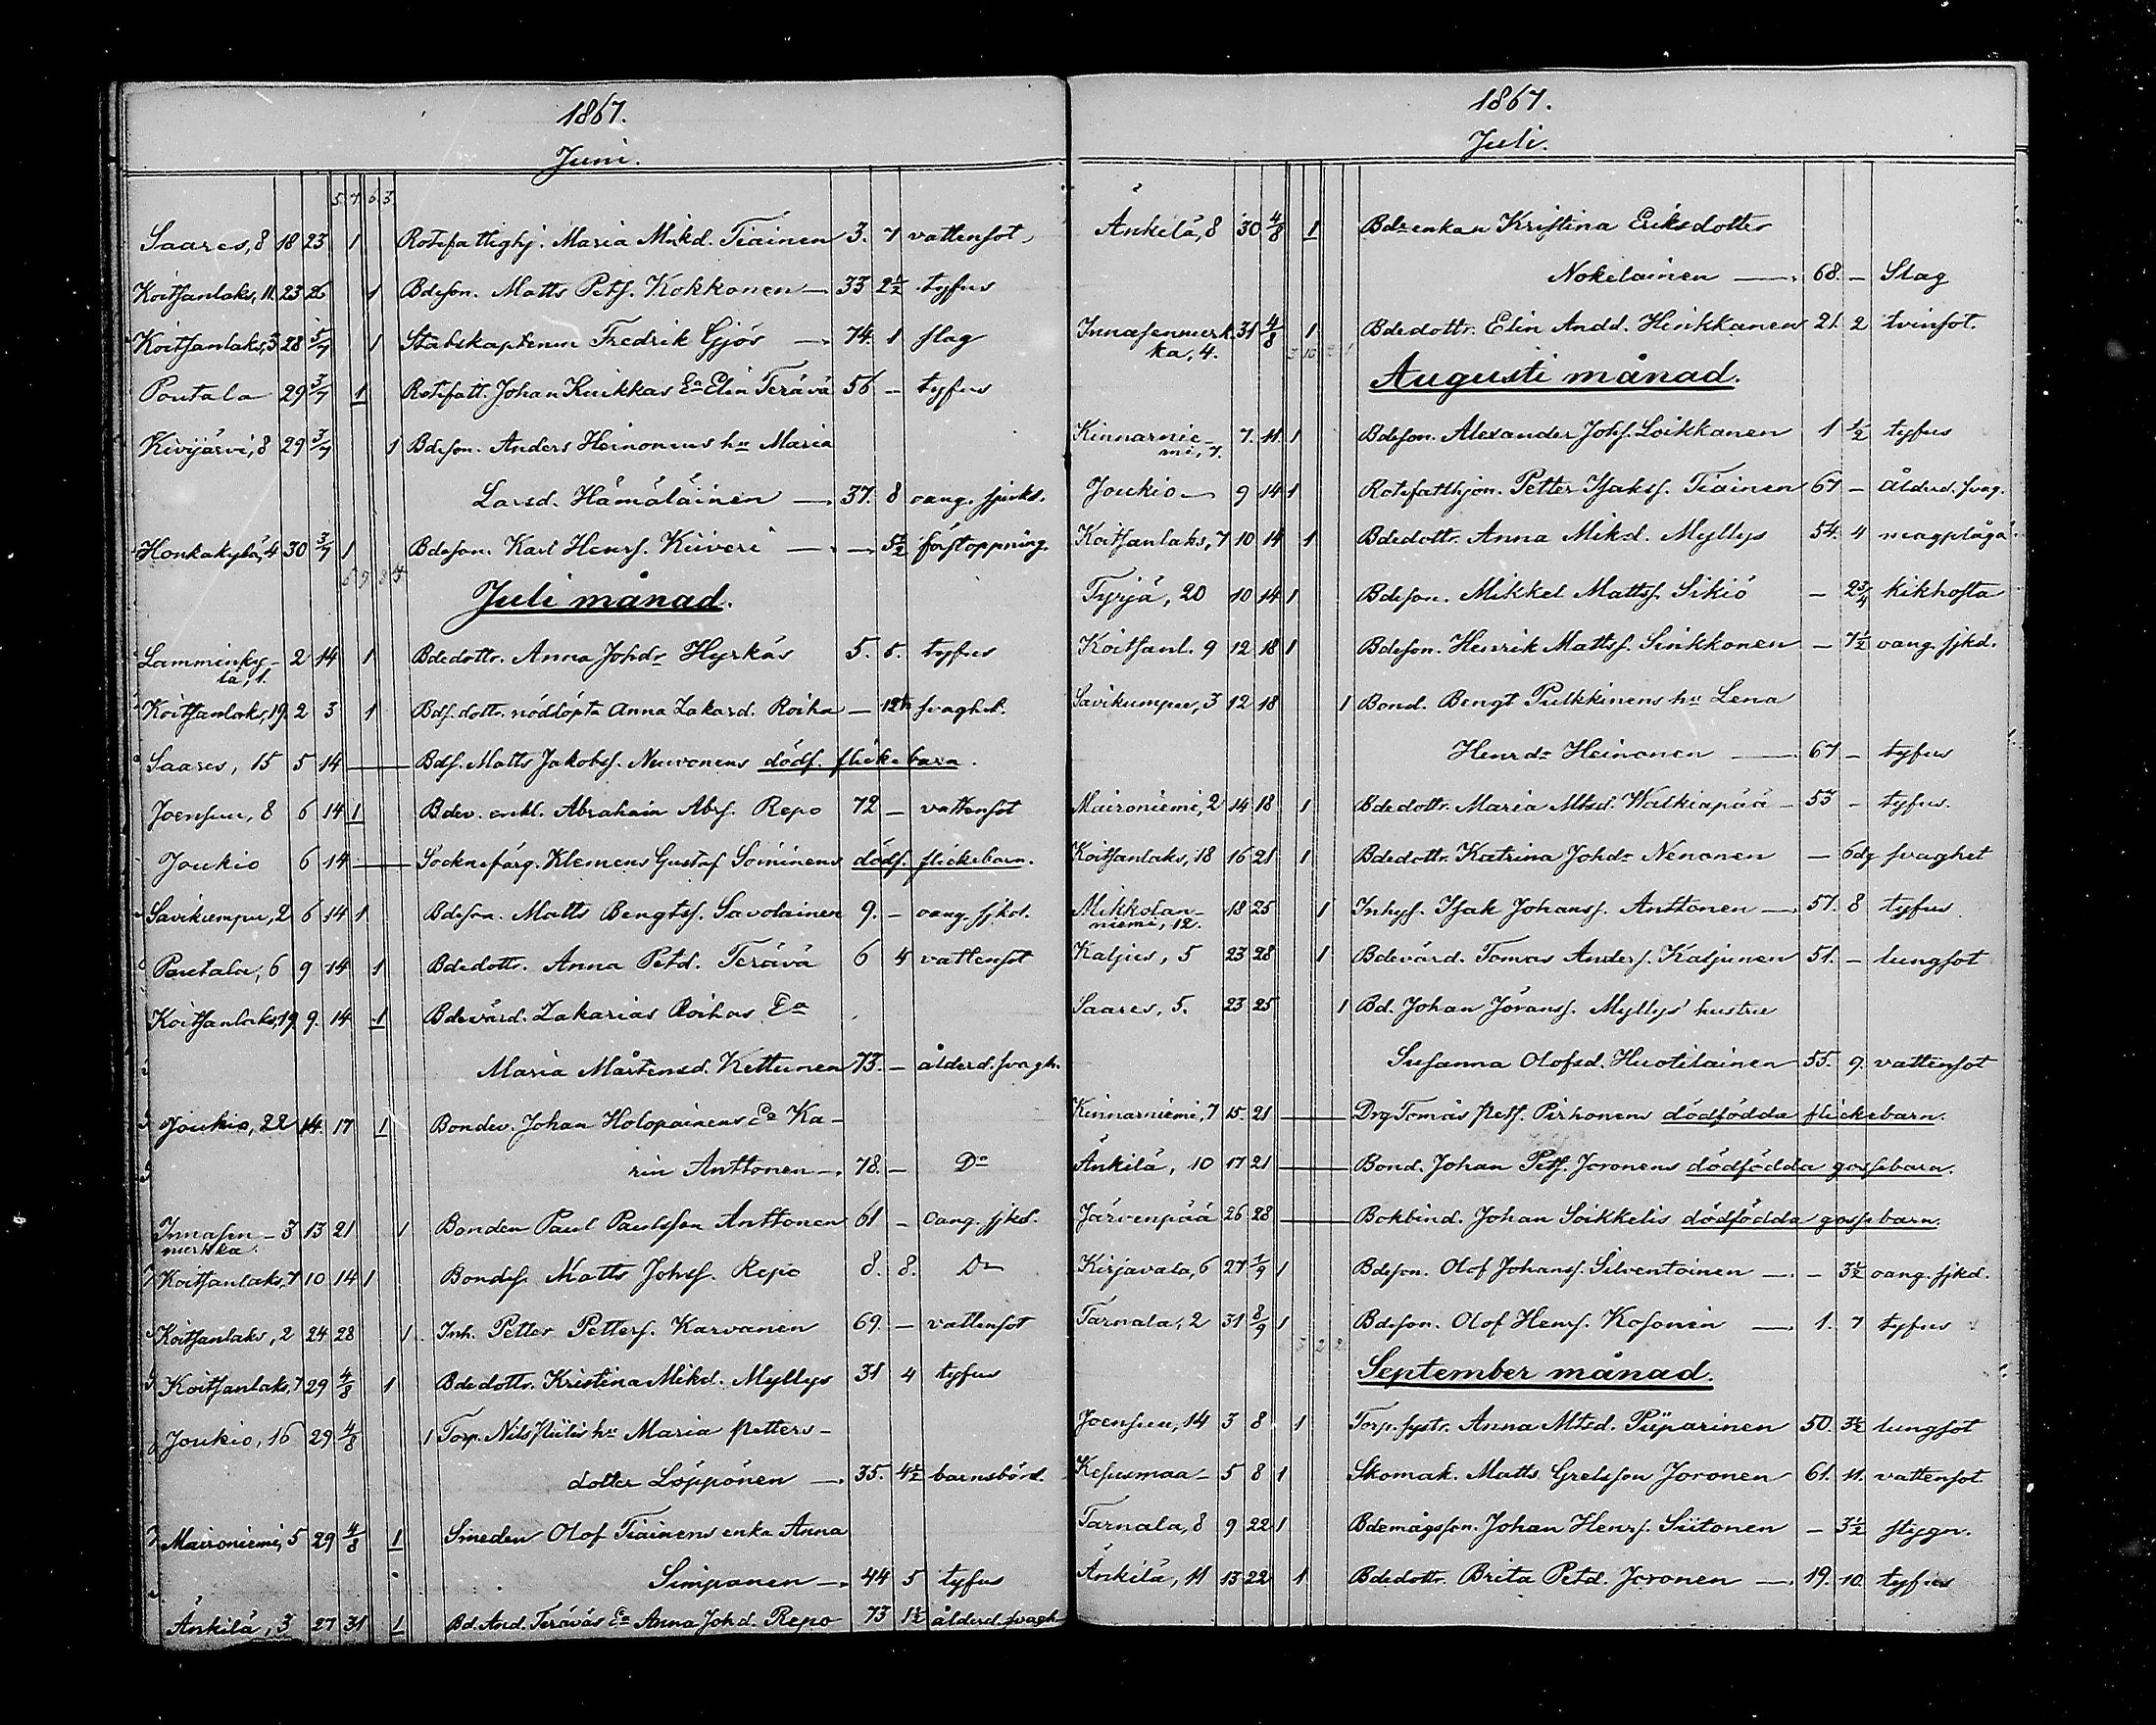 1867.
Juni.
5. 7. 6. 3.
Saares, 8 18 23 1 Rotefattighj. Maria Mikd. Tiainen 3. 7 vattensot
Koitsanlaks, 11. 23 26 1 Bdeson. Matts Pets. Kokkonen — 33 2½ tyfus
Koitsanlaks, 3 28 5/7 1 Stabskaptenen Fredrik Gjös — 74. 1 slag
Poutala 29 3/7 1 Rotefatt. Johan Kuikkas Ea Elin Terävä 56 — tyfus
Kivijärvi, 8 29 3/7 1 Bdeson. Anders Heinonens hu Maria
Larsd. Hämäläinen — 37. 8 oang. sjukd.
Honkakylä, 4 30 3/7 1 Bdeson. Karl Henrs. Kiiveri — — 5½ förstoppning.
Juli månad.
Lamminky- 2 14 1 Bdedottr. Anna Johdr Hyrkäs 5. 5. tyfus
lä, 1.
Koitsanlaks, 19. 2 3 1 Bds. dottr. nöddöpta Anna Zakard. Roiha — 12 t. svaghet.
Saares, 15 5 14 — Bds. Matts Jakobs. Neuvonens dödf. flickebarn.
Joensuu, 8 6 14 1 Bdev. enkl. Abraham Abrs. Repo 72 — vattensot
Joukio 6 14 — Socknefärg. Klemens Gustaf Soininens dödf. flickebarn.
Savikumpu, 2 6 14 1 Bdeson. Matts Bengtss. Savolainen 9. — oang. sjkd.
Pautala, 6 9 14 1 Bdedottr. Anna Petd. Terävä 6 4 vattensot
Koitsanlaks, 19 9. 14 1 Bdevärd. Zakarias Roihas Ea
Maria Mårtensd. Kettunen 73. — ålderd. svagh.
Joukio, 22 14. 17 1 Bondev. Johan Holopainens Ea Ka-
rin Anttonen — 78. — Do
Innasen- 3 13 21 1 Bonden Paul Paulsson Anttonen 61 — oang. sjkd.
murkka.
Koitsanlaks, 7 10 14 1 Bondes. Matts Johss. Repo 8. 8. Do
Koitsanlaks, 2 24 28 1. Inh. Petter Petters. Karvanen 69. — vattensot
Koitsanlaks, 7 29 4/8 1 Bdedottr. Kristina Mikd. Myllys 31 4 tyfus
Joukio, 16 29 4/8 1 Torp. Nils Piilis hu Maria Petters-
dotter Löppönen — 35. 4½ barnsbörd.
Maironiemi, 5 29 4/8 1 Smeden Olof Tiainens enka Anna
Simpanen — 44 5 tyfus
Änkilä, 3 27 31 1 Bd. And. Teräväs Ea Anna Johd. Repo 73 1½ ålderd. svagh.
1867.
Juli.
Änkilä, 8 30 4/8 1 Bdeenkan Kristina Eriksdotter
Nokelainen — 68. — Slag
Innasenmurk- 31 4/8 1 Bdedottr. Elin Andd. Hinkkanen 21. 2 tvinsot.
ka, 4.
Augusti månad.
Kinnarnie- 7. 11. 1 Bdeson. Alexander Johs. Loikkanen 1 ½ tyfus
mi, 7.
Joukio — 9 14 1 Rotefatthjon. Petter Isaks. Tiainen 67 — ålderd. svag.
Koitsanlaks, 7 10 14 1 Bdedottr. Anna Mikd. Myllys 54. 4 magplåga.
Tyrjä, 20 10 14 1 Bdeson. Mikkel Mattss. Sikiö — 2¾ kikhosta
Koitsanl. 9 12 18 1 Bdeson. Henrik Mattss. Sinkkonen — 7½ oang. sjkd.
Savikumpu, 3 12 18 1 Bond. Bengt Pulkkinens hu Lena
Henrdr Heinonen — 67 — tyfus
Maironiemi, 2 14 18 1 Bdedottr. Maria Mtsd. Walkiapää — 53 — tyfus.
Koitsanlaks, 18 16 21 1 Bdedottr. Katrina Johdr Nenonen — 6 dg svaghet
Mikkolan- 18 25 1 Inhys. Isak Johanss. Anttonen — 57. 8 tyfus
niemi, 12.
Kaljus, 5 23 28 1 Bdevärd. Tomas Anders. Kaljunen 51. — lungsot
Saares, 5. 23 25 1 Bd. Johan Jöranss. Myllys' hustru
Susanna Olofsd. Huotilainen 55. 9. vattensot
Kinnarniemi, 7 15. 21 — Drg Tomas Pets. Pirhonens dödfödda flickebarn.
Änkilä, 10 17 21 — Bond. Johan Pets. Joronens dödfödda gossebarn.
Järvenpää 26 28 — Bokbind. Johan Soikkelis dödfödda gossebarn.
Kirjavala, 6 27 1/9 1 Bdeson. Olof Johanss. Silventoinen — — 3½ oang. sjkd.
Tarnala, 2 31 8/9 1 Bdeson. Olof Henrs. Kosonen — 1. 7 tyfus
September månad.
Joensuu, 14 3 8 1 Torp. systr. Anna Mtsd. Piiparinen 50. 3½ lungsot
Kesusmaa — 5 8 1 Skomak. Matts Grelsson Joronen 61. 11. vattensot.
Tarnala, 8 9 22 1 Bdemågsson. Johan Henrs. Siitonen — 3½ stygn.
Änkilä, 11 13 22 1 Bdedottr. Brita Petd. Joronen — 19. 10. tyfus